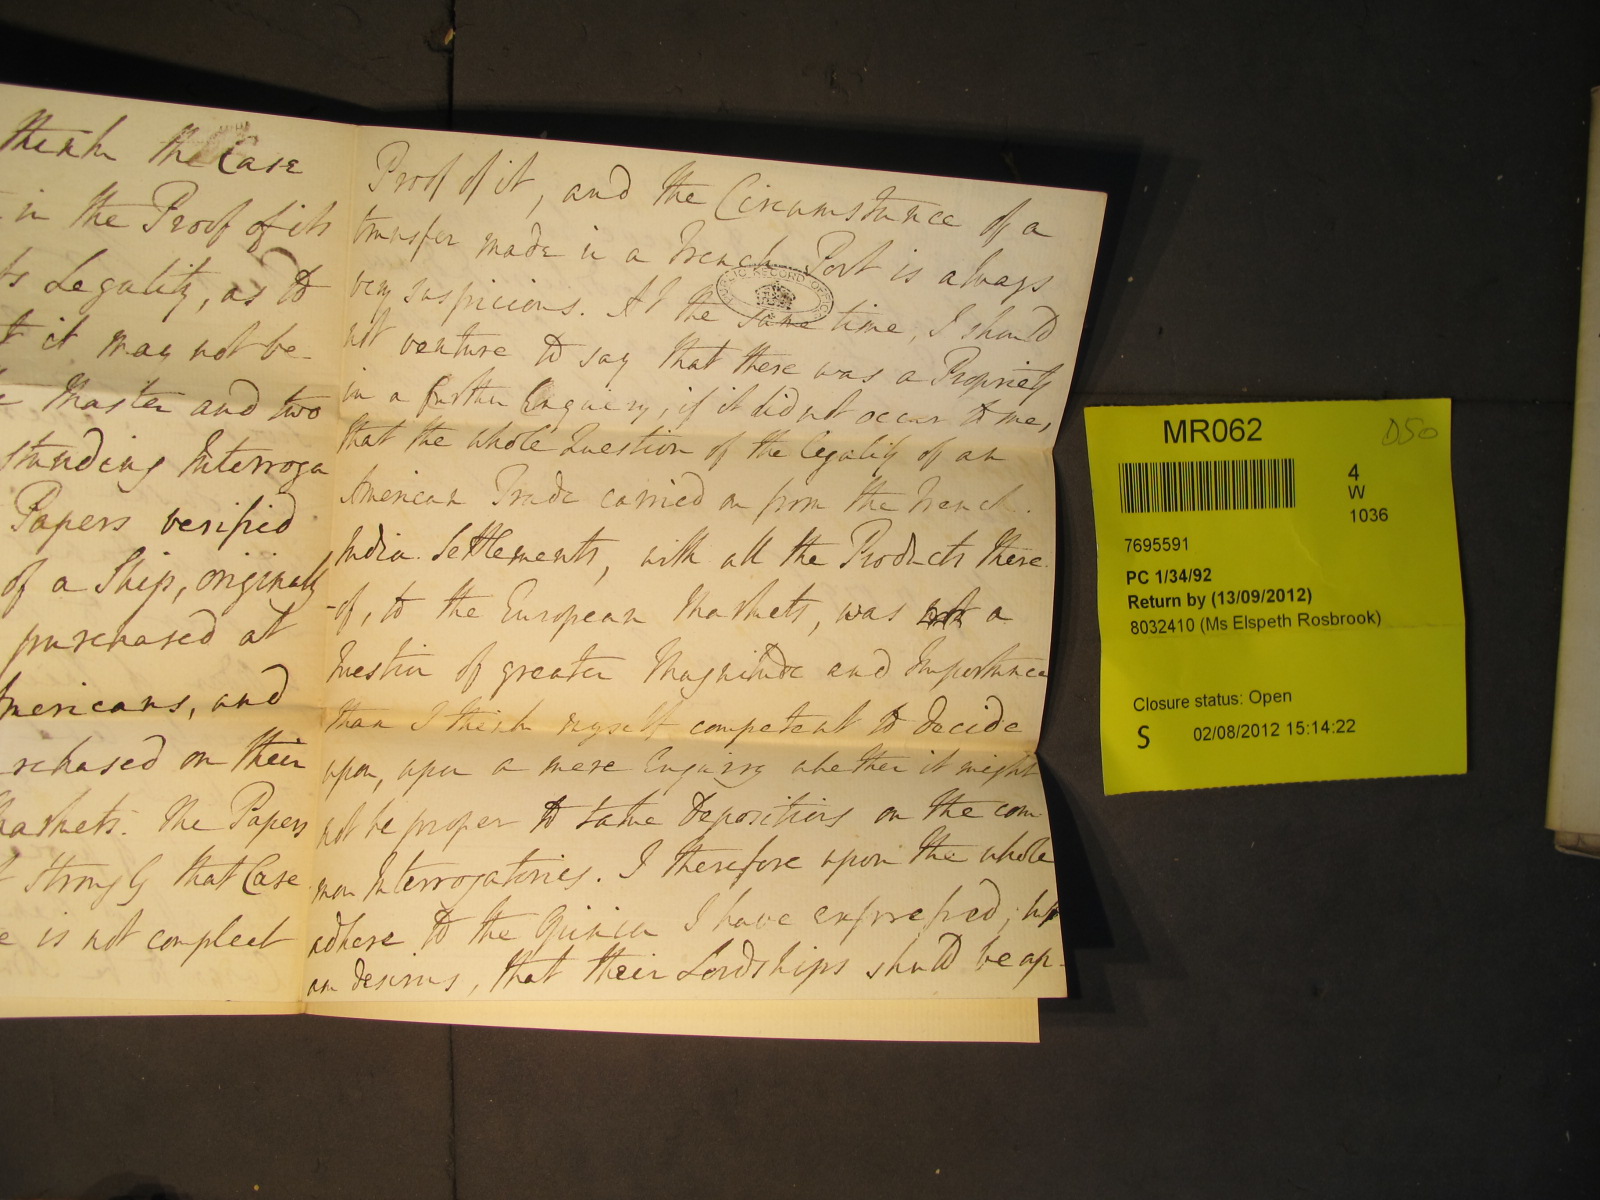 think the Case
in the Proof of its
ts Legality, as to
t it may not be-
Master and two
standing Interroga
Papers verified
of a Ship, originally
purchased at
Americans, and
rchased on their
Markets. The Papers
t strongly that Case
e is not compleet
Proof of it, and the Circumstance of a
transfer made in a French Port is always
very suspicious. At the same time, I should
not venture to say that there was a Propriety
in a further Enquiry, if it did not occur to me,
that the whole Question of the legality of an
American Trade carried on from the French.
India Settlements, with all the Products there.
-of, to the European Markets, was not a
Question of greater Magnitude and Importance
than I think myself competent to decide
upon, upon a mere Enquiry whether it might
not be proper to take Depositions on the com
mon Interrogatories. I therefore upon the whole
adhere to the Opinion I have expressed; but
am desirous, that their Lordships should be ap-
PUBLIC RECORD OFFICE
MR062
D50
4
W
1036
7695591
PC 1/34/92
Return by (13/09/2012)
8032410 (Ms Elspeth Rosbrook)
Closure status: Open
S 02/08/2012 15:14:22